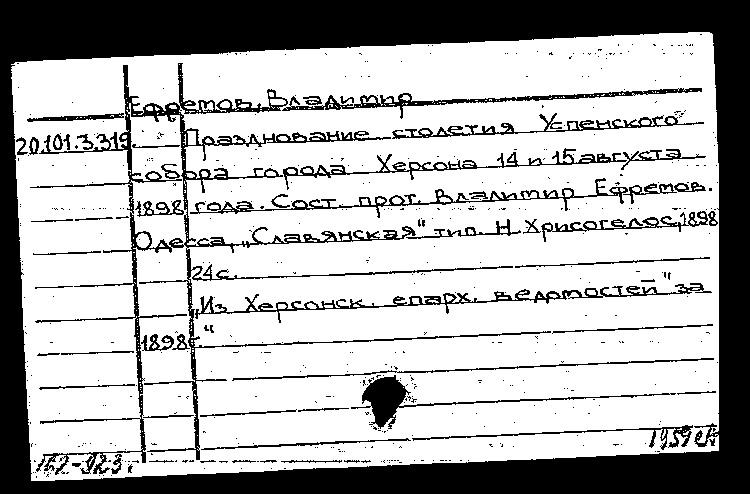 Ефремов, Владимир
20.101.3.319. Празднование столетия Успенского
собора города Херсона 14 и 15 августа
1898 года. Сост. прот. Владимир Ефремов.
Одесса, „Славянская" тип. Н. Хрисогелос, 1898
24 с.
„Из Херсонск. епарх. ведомостей" за
1898 г."
162-923.